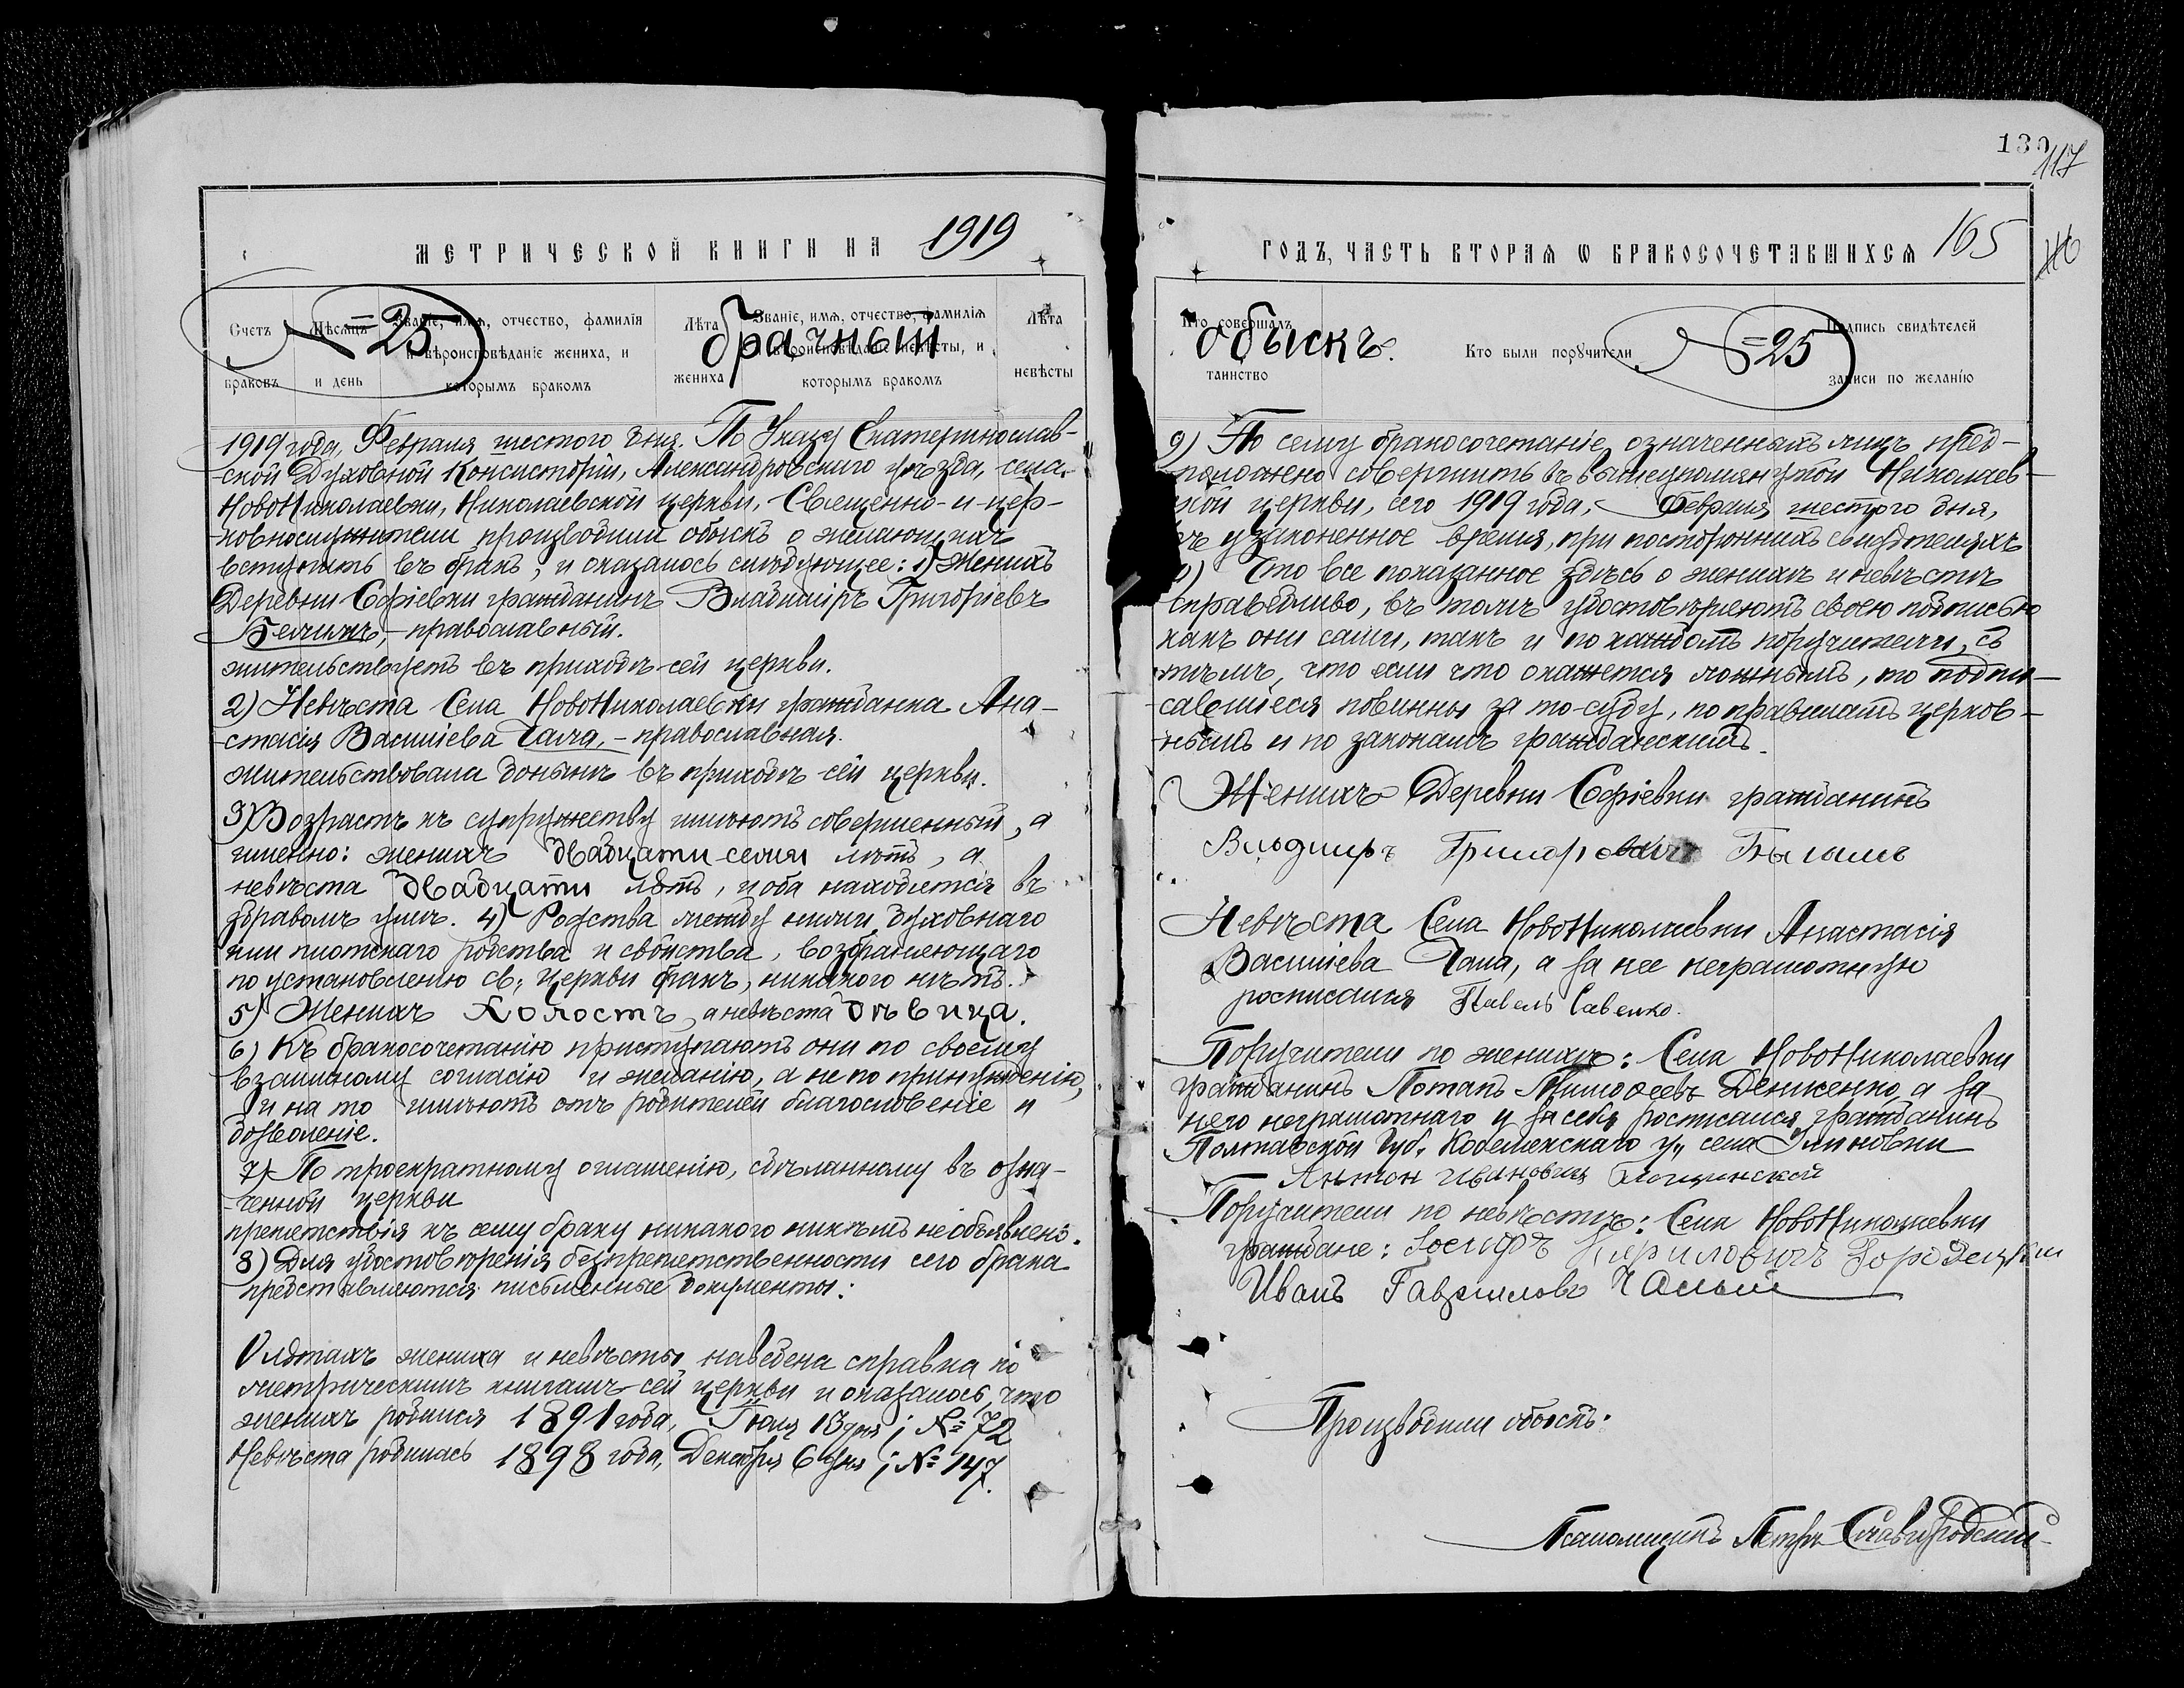 130
117
116
МЕТРИЧЕСКОЙ КНИГИ НА 1919
ГОДЪ, ЧАСТЬ ВТОРАЯ Ѡ БРАКОСОЧЕТАВШИХСЯ 165
Счетъ браковъ
Мѣсяцъ и день
Званіе, имя, отчество, фамилія и вѣроисповѣданіе жениха, и которымъ бракомъ
Лѣта жениха
Званіе, имя, отчество, фамилія и вѣроисповѣданіе невѣсты, и которымъ бракомъ
Лѣта невѣсты
Кто совершалъ таинство
Кто были поручители
Подпись свидѣтелей записи по желанію
№ 25 брачный обыскъ. № 25
1919 года, Февраля шестого дня. По Указу Екатеринослав-
ской Духовной Консисторіи, Александровскаго уѣзда, села
НовоНиколаевки, Николаевской церкви, Священно-и-цер-
ковнослужители производили обыскъ о желающихъ
вступить въ бракъ; и оказалось слѣдующее: 1) Женихъ
Деревни Софіевки гражданинъ Владиміръ Григоріевъ
православный.
жительствуетъ въ приходѣ сей церкви.
2) Невѣста Села НовоНиколаевки гражданка Ана-
стасія Василіева православная.
жительствовала донынѣ въ приходѣ сей церкви.
3) Возрастъ къ супружеству имѣютъ совершенный, а
именно: женихъ двадцати семи лѣтъ, а
невѣста двадцати лѣтъ, и оба находятся въ
здравомъ умѣ. 4) Родства между ними духовнаго
или плотскаго родства и свойства, возбраняющаго
по установленію св. церкви бракъ, никакого нѣтъ.
5) Женихъ холостъ, а невѣста дѣвица.
6) Къ бракосочетанію приступаютъ они по своему
взаимному согласію и желанію, а не по принужденію,
и на то имѣютъ отъ родителей благословеніе и
дозволеніе.
7) По троекратному оглашенію, сдѣланному въ озна-
ченной церкви
препятствія къ сему браку никакого никѣмъ не объявлено.
8) Для удостовѣренія безпрепятственности сего брака
представляются письменные документы:
О лѣтахъ жениха и невѣсты наведена справка по
метрическимъ книгамъ сей церкви и оказалось, что
женихъ родился 1891 года, Іюля 13 дня; № 72
Невѣста родилась 1898 года, Декабря 6 дня; № 147.
9) По сему бракосочетаніе означенныхъ лицъ пред-
положено совершить въ вышеупомянутой Николаев-
ской церкви, сего 1919 года, Февраля шестого дня,
въ узаконенное время, при постороннихъ свидѣтеляхъ
10) Что все показанное здѣсь о женихѣ и невѣстѣ
справедливо, въ томъ удостовѣряютъ своею подписью
какъ они сами, такъ и по каждомъ поручители, съ
тѣмъ, что если что окажется ложнымъ, то подпи-
савшіеся повинны за то суду, по правиламъ церков-
нымъ и по законамъ гражданскимъ.
Женихъ Деревни Софіевки гражданинъ
Григорович
Невѣста Села НовоНиколаевки Анастасія
Василіева а за нее неграмотную
росписался Павелъ Савенко.
Поручители по женихѣ: Села НовоНиколаевки
гражданинъ Потапъ Тимоѳеевъ Денисенко, а за
него неграмотнаго и за себя росписался гражданинъ
Полтавской Губ. Кобелякскаго у., села
Антон Иванович
Поручители по невѣстѣ: Села НовоНиколаевки
граждане: Іосифъ Кириловичъ Городецкий
Иванъ Гавриловъ Чалый
Производили обыскъ:
Псаломщикъ Петръ Славгородский